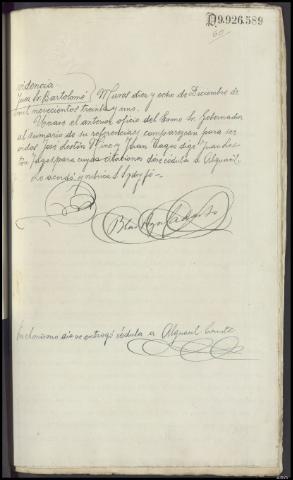 D9.926.589
60
videncia
Juez Sr. Bartolomé } Muras diez y ocho de Diciembre de
mil novecientos treinta y uno.
Unase el anterior oficio del Excmo Sr. Gobernador
al sumario de su referencia y comparezcan para ser
oidos José Lestón y Juan Pages digo Juan Les-
tón Pages para cuyas citaciones dese cédula al Alguacil.
Lo acordó y rubrica S. Sª doy fé.
Blas
En el mismo dia se entregó cédula al Alguacil Conste